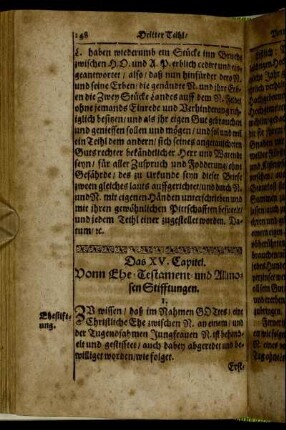 148 Dritter Teihl/
L. haben wiederumb ein Stücke im Bruche
zwischen H.O. und A. P. erblich cediret und ein-
geantwortet / also / daß nun hinführder der N.
und seine Erben / die genandte N. und ihre Er-
ben die Zwey Stücke Landes auff dem N. Felde
ohne jemands Einrede und Verhinderung ru-
higlich besitzen / und als ihr eigen Gut gebrauchen
und geniessen sollen und mögen / und sol und wil
ein Teihl dem andern / sich seines angetauschten
Gutes rechter bekändtlicher Herr und Warende
seyn / für aller Zuspruch und Rodderung / ohne
Gefährde / des zu Urkunde seyn dieser Briefe
zween gleiches lauts auffgerichtet / und durch N.
und N. mit eigenen Händen unterschrieben und
mit ihren gewöhnlichen Pittschafften befestet /
und jedem Teihl einer zugestellet worden. Da-
tum / ec.
Das XV. Capitel.
Vonn Ehe-Testament- und Allmo-
sen Stifftungen.
1.
Ehestifftu-
ng.
ZU wissen / daß im Nahmen GOttes / eine
Christliche Ehe zwischen N. an einem / und
der Tugendsahmen Jungfrauen N. ist behand-
elt und gestifftet / auch dabey abgeredet und be-
williget worden / wie folget.
Erst-